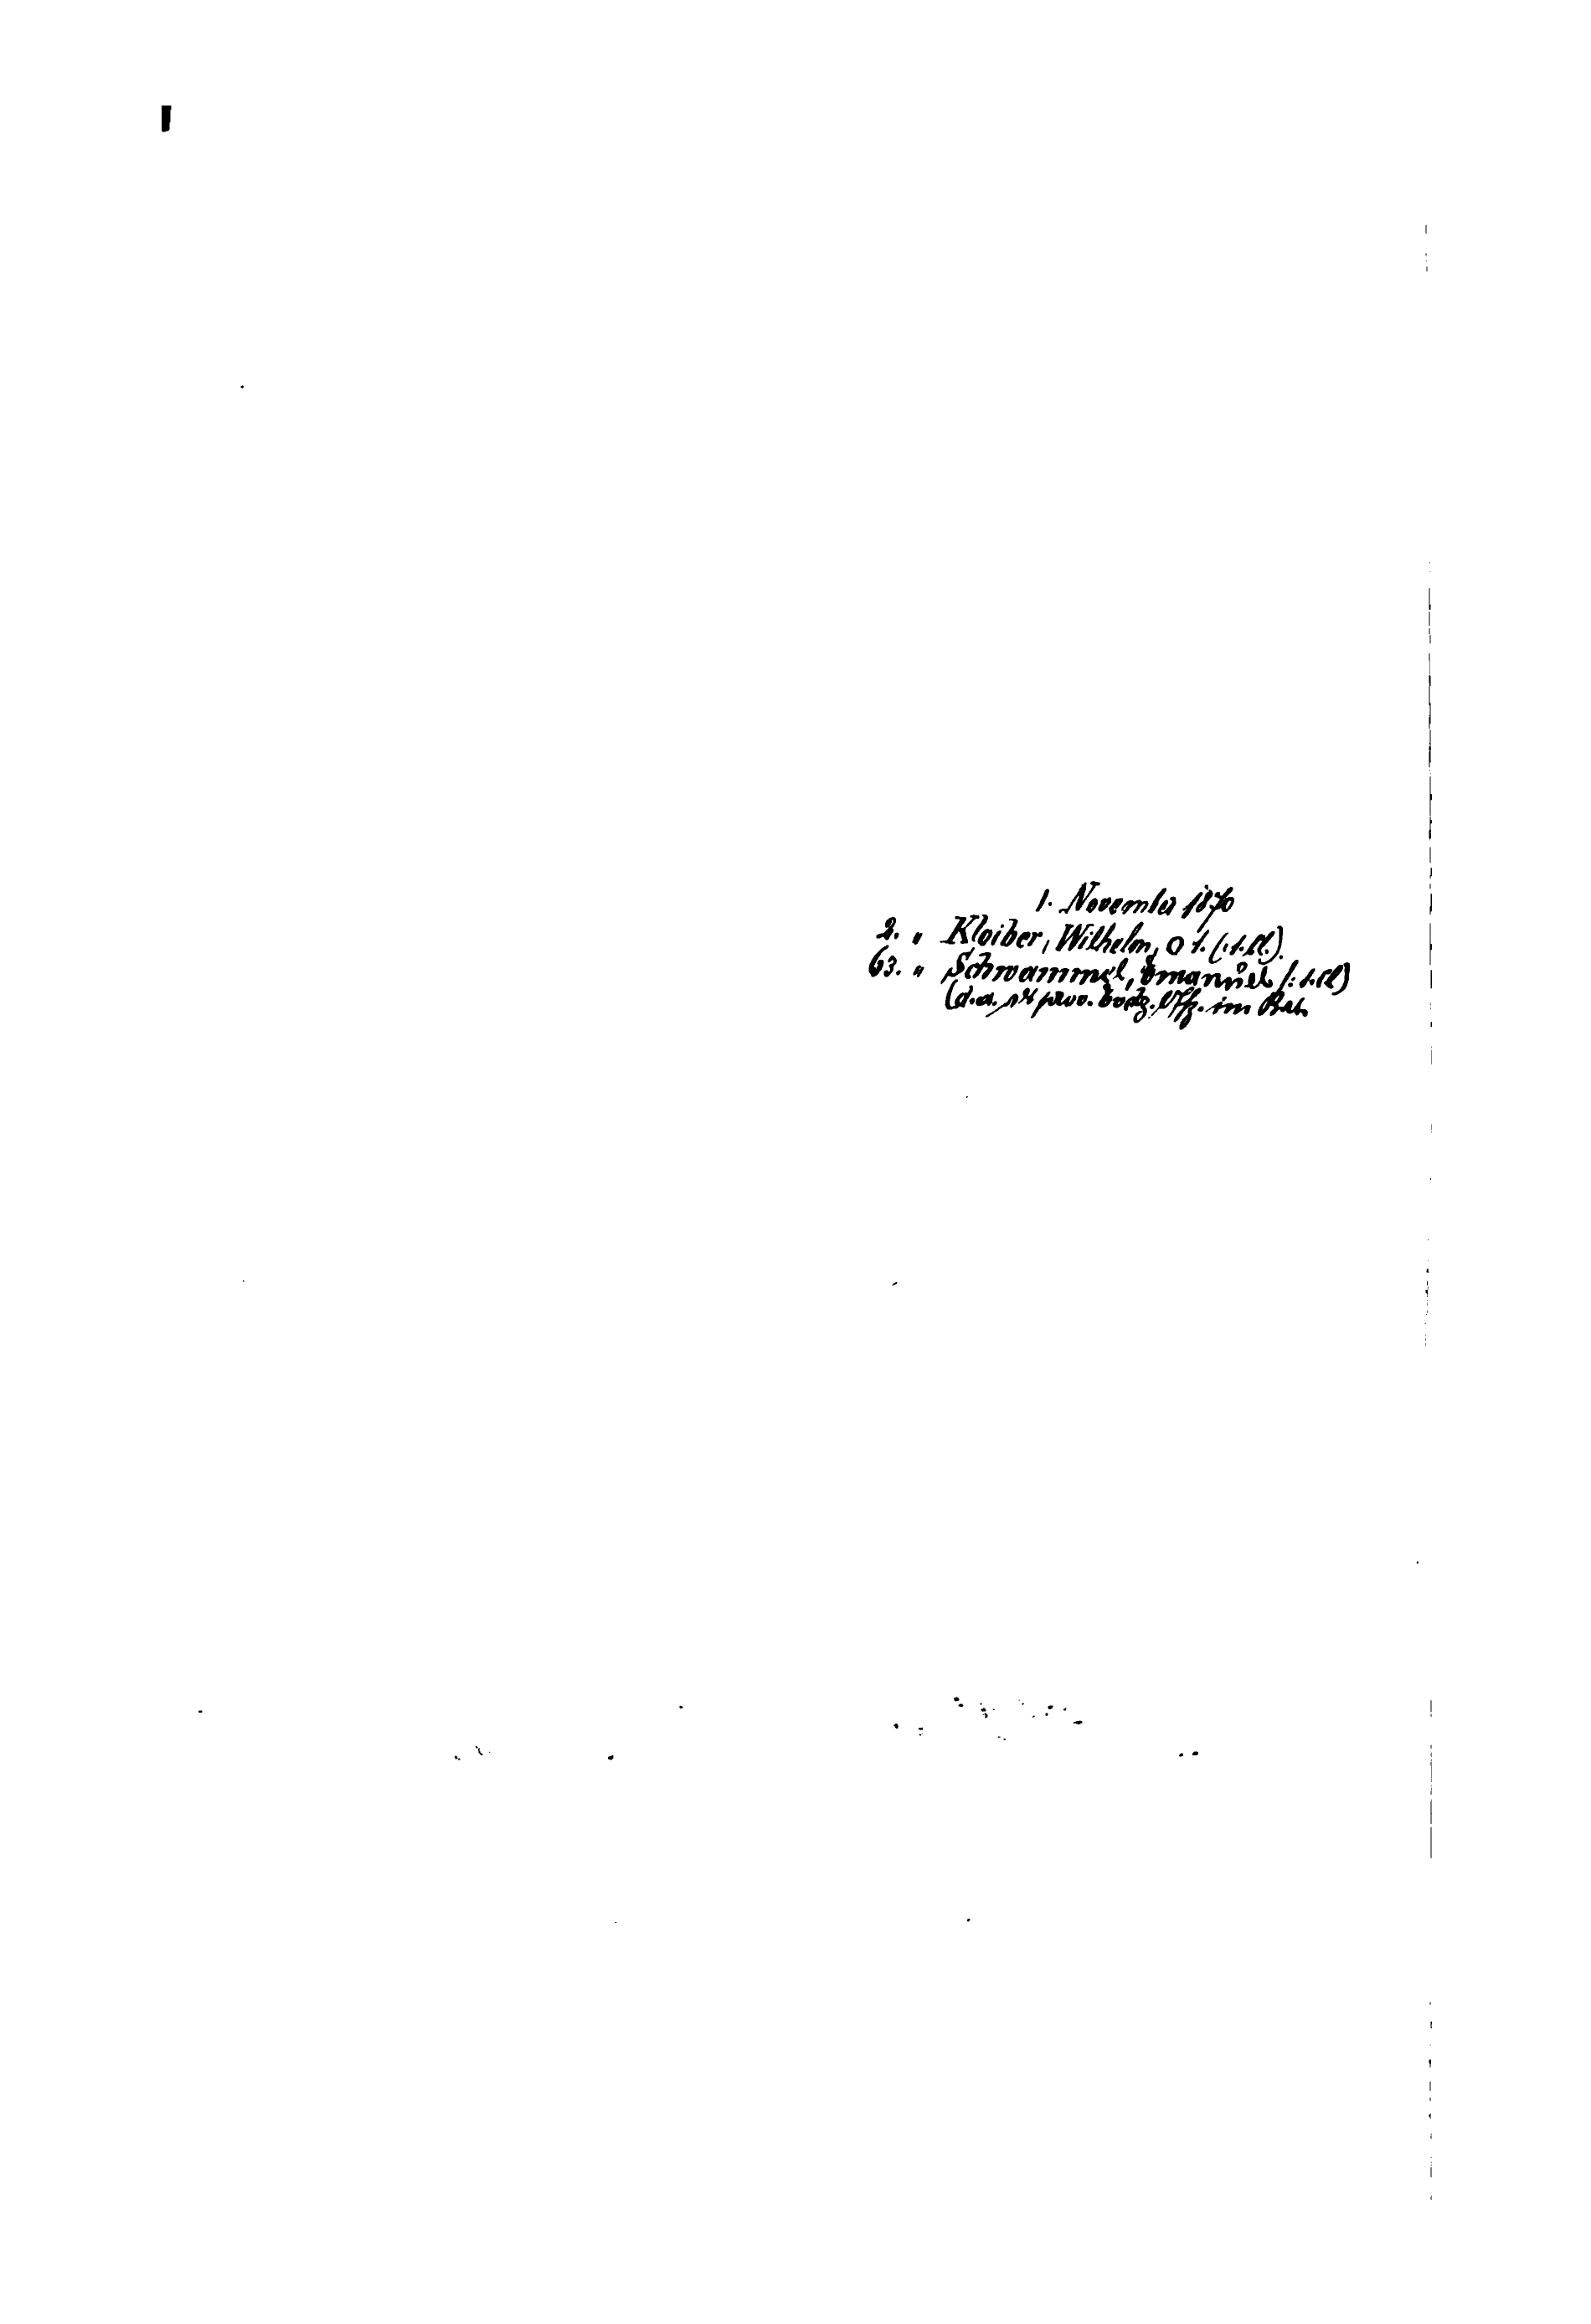 1. November 1870
2. „ Kloiber, Wilhelm, O 1. (:1.Cl.).
63. „ Schwammel, Emanuel (:1.Cl)
(d.a. prov. im